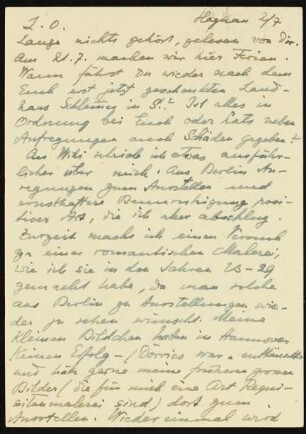 L. O. Hagnau 2/7
Lange nichts gehört, gelesen von Dir.
Am 21.7. machen wir hier Ferien.
Wann fährst Du wieder nach dem
Euch erst jetzt geschenkten Land-
haus in S.? Ist alles in
Ordnung bei Euch oder hats neben
Aufregungen auch Schäden gegeben?
An Willi schrieb ich etwas ausführ-
licher über mich. Aus Berlin An-
regungen zum Ausstellen und
ernsthafte Beunruhigung posi-
tiver Art, die ich aber abschlug.
Zurzeit mache ich einen Versuch
zu einer romantischen Malerei,
wie ich sie in den Jahren 23-29
gemacht habe, da man solche
aus Berlin zu Ausstellungen wie-
der zu sehen wünscht. Meine
kleinen Bildchen hatten in Hannover
keinen Erfolg - (Dorries war
und hätte gerne meine früheren grossen
Bilder (die für mich eine Art Requi-
sitenmalerei sind) dort zum
Ausstellen. Wieder einmal wird